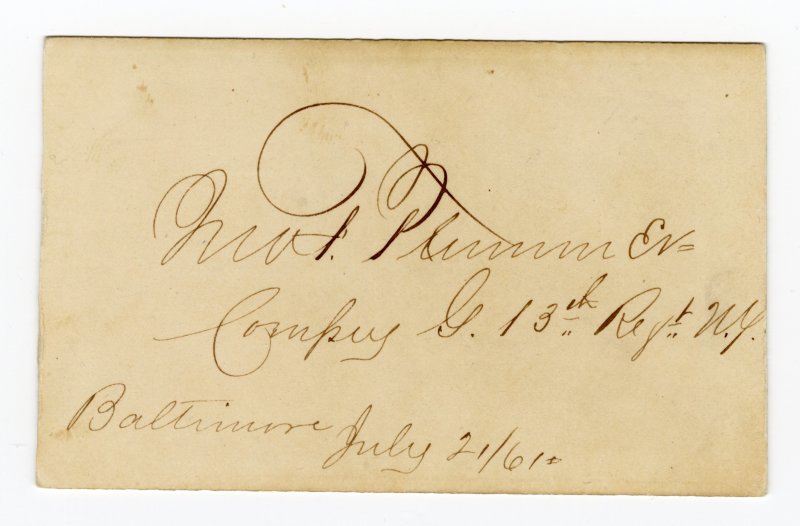 Jno. P. Plummer
Compny G. 13th Regt. N.Y.
Baltimore July 21/61